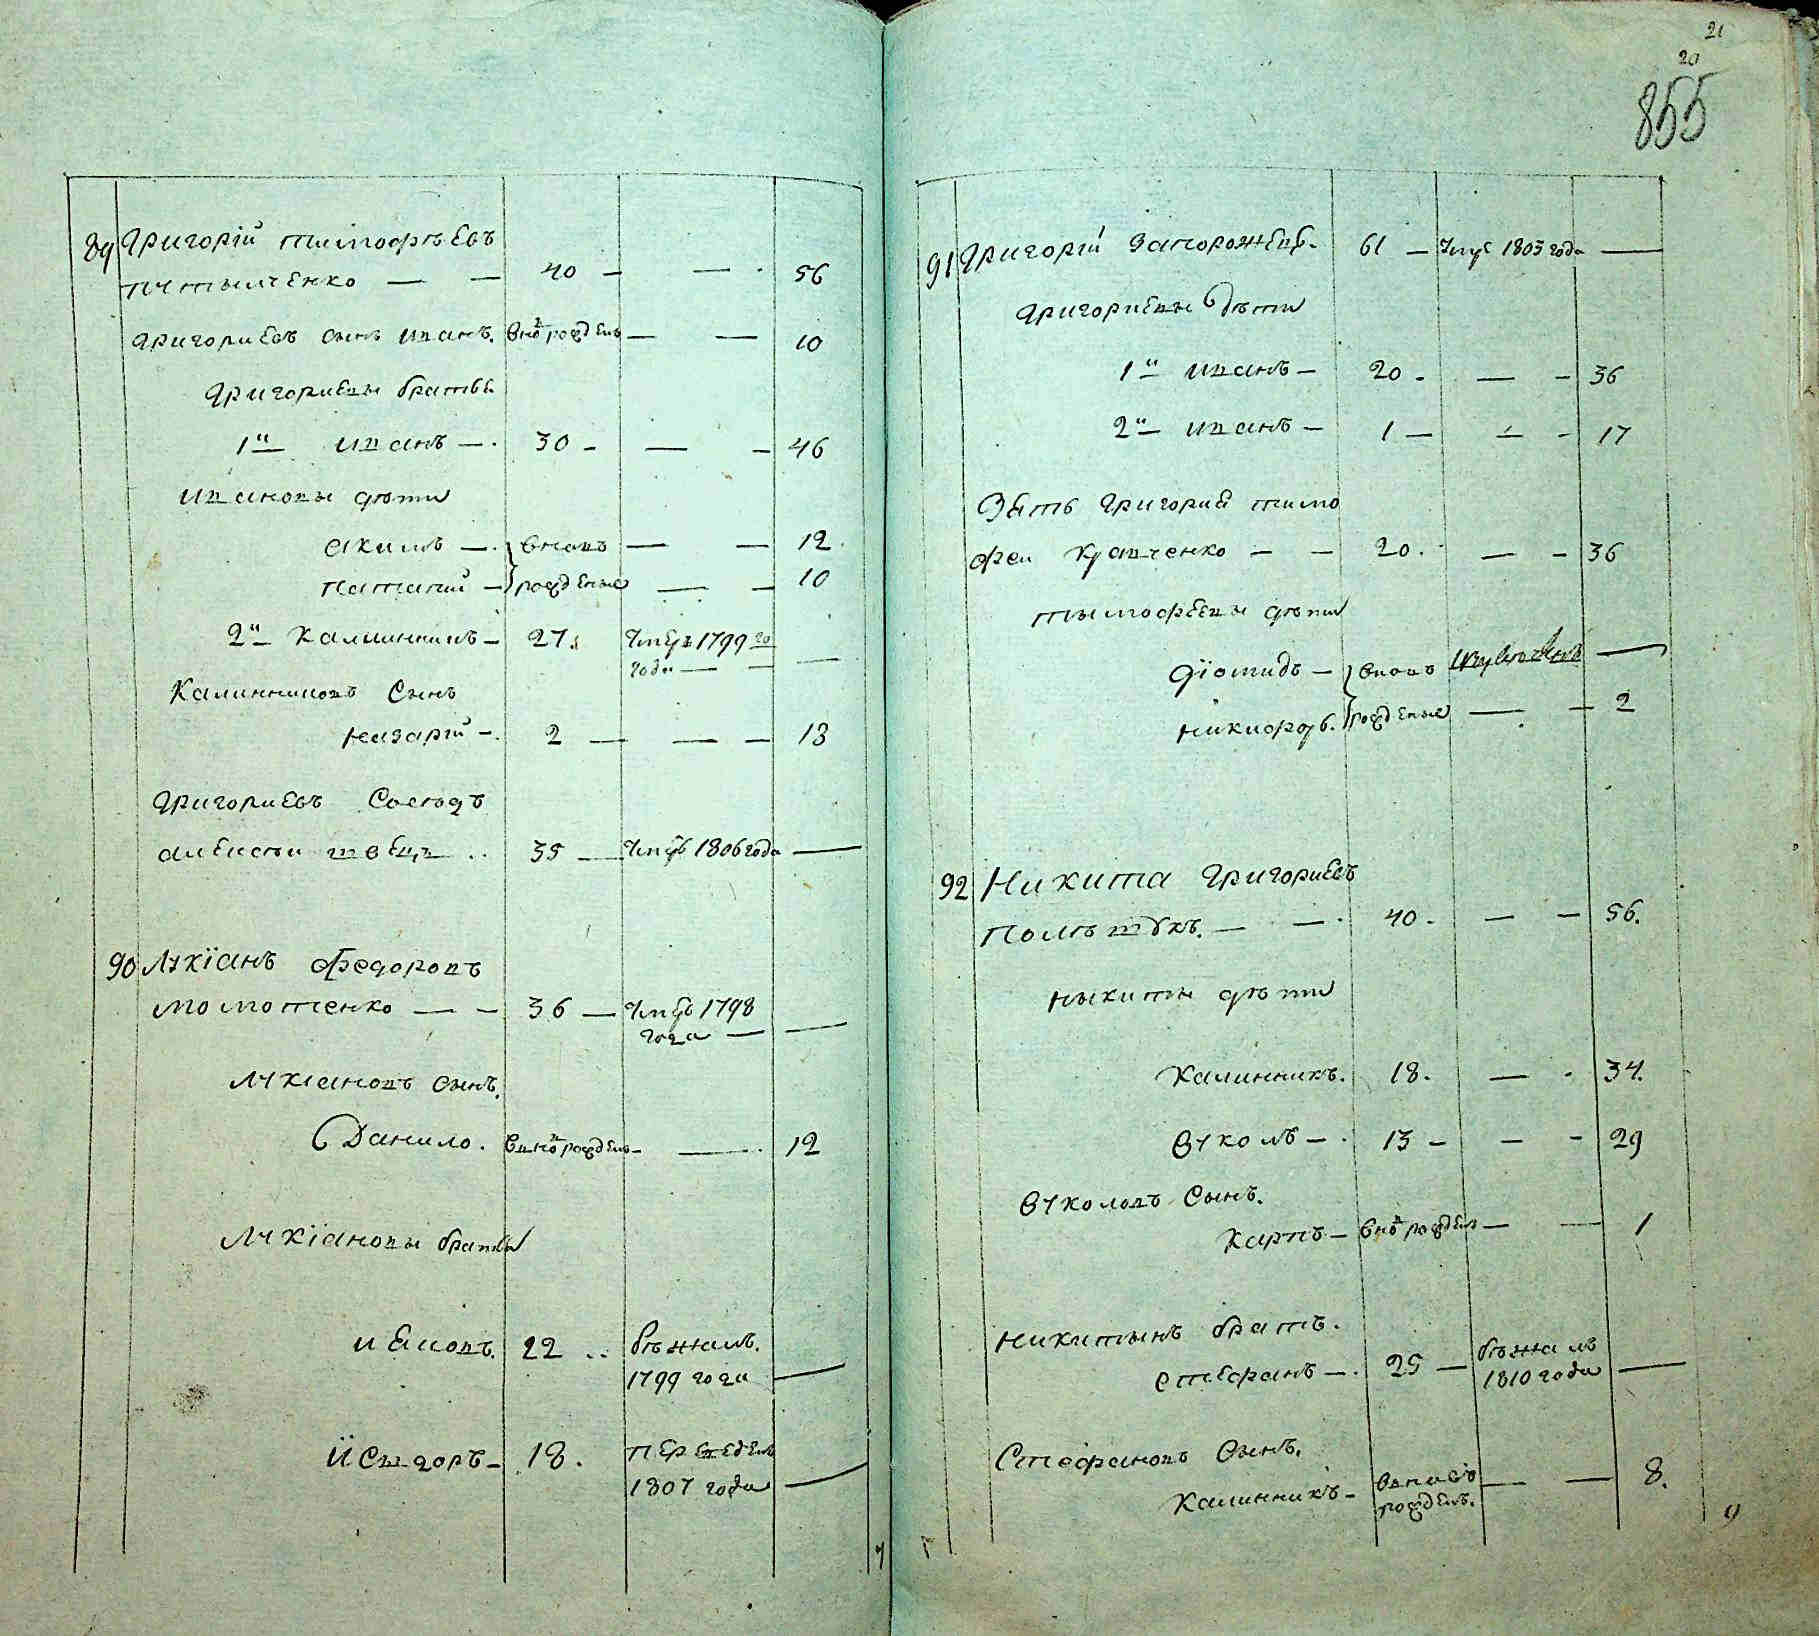 89 Григорій тимофѣевъ
путымченко — — 40 — — . 56
григориевъ сынъ иванъ. внѡвъ рождены — — 10
григориевы братья
1й иванъ — . 30 — — — 46
ивановы дѣти
аким — . вновъ — — 12
патапий — рождение — — 10
2й калинникъ — 27. Умре 1799 го
года — — —
калинниковъ сынъ
назарій — . 2 — — — 13
григориевъ соседъ
алексѣи швецъ .. 35 — Умре 1806 года —
90 лукіанъ федоровъ
момотенко — — 36 — Умре 1798
года — —
лукиановъ сынъ.
данило . вновъ рожденъ — — . 12
лукіановы братья
иевъ. 22 .. бѣжалъ.
1799 года —
исидоръ — 18. перведенъ
1807 года —
21
20
855
91 григорій запорожецъ. 61 — Умре 1803 года —
григориевы дѣти
1й иванъ — 20 . — — 36
2й иванъ — 1 — — — 17
Зять григория тимо
феи кравченко — — 20. — — 36
тымофеевы дѣти
діомидъ — вновъ —
никифоръ. рождение — — 2
92 Никита григориевъ
полѣтукъ. — — . 40 . — — 56.
ныкиты дѣти
калинникъ. 18. — . 34.
вуколъ — . 13 — — — 29
вуколовъ сынъ.
карпъ — вновъ рожденъ — — 1
никитынъ братъ.
стефанъ — . 25 — бѣжалъ
1810 года —
Стефановъ сынъ.
калинникъ — вновъ — — 8.
рожденъ.